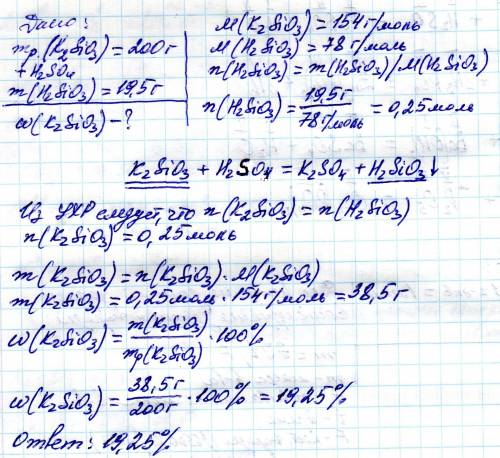 Дано:
mр.(K2SiO3)=200г
+H2SO4
m(H2SiO3)=19,5г
ω(K2SiO3)-?
M(K2SiO3)=154г/моль
M(H2SiO3)=78г/моль
n(H2SiO3)=m(H2SiO3)/M(H2SiO3)
n(H2SiO3)=19,5г/78г/моль=0,25моль
K2SiO3+H2SO4=K2SO4+H2SiO3↓
Из УХР следует, что n(K2SiO3)=n(H2SiO3)
n(K2SiO3)=0,25моль
m(K2SiO3)=n(K2SiO3)·M(K2SiO3)
m(K2SiO3)=0,25моль·154г/моль=38,5г
ω(K2SiO3)=m(K2SiO3)/mр(K2SiO3)·100%
ω(K2SiO3)=38,5г/200г·100%=19,25%
Ответ: 19,25%